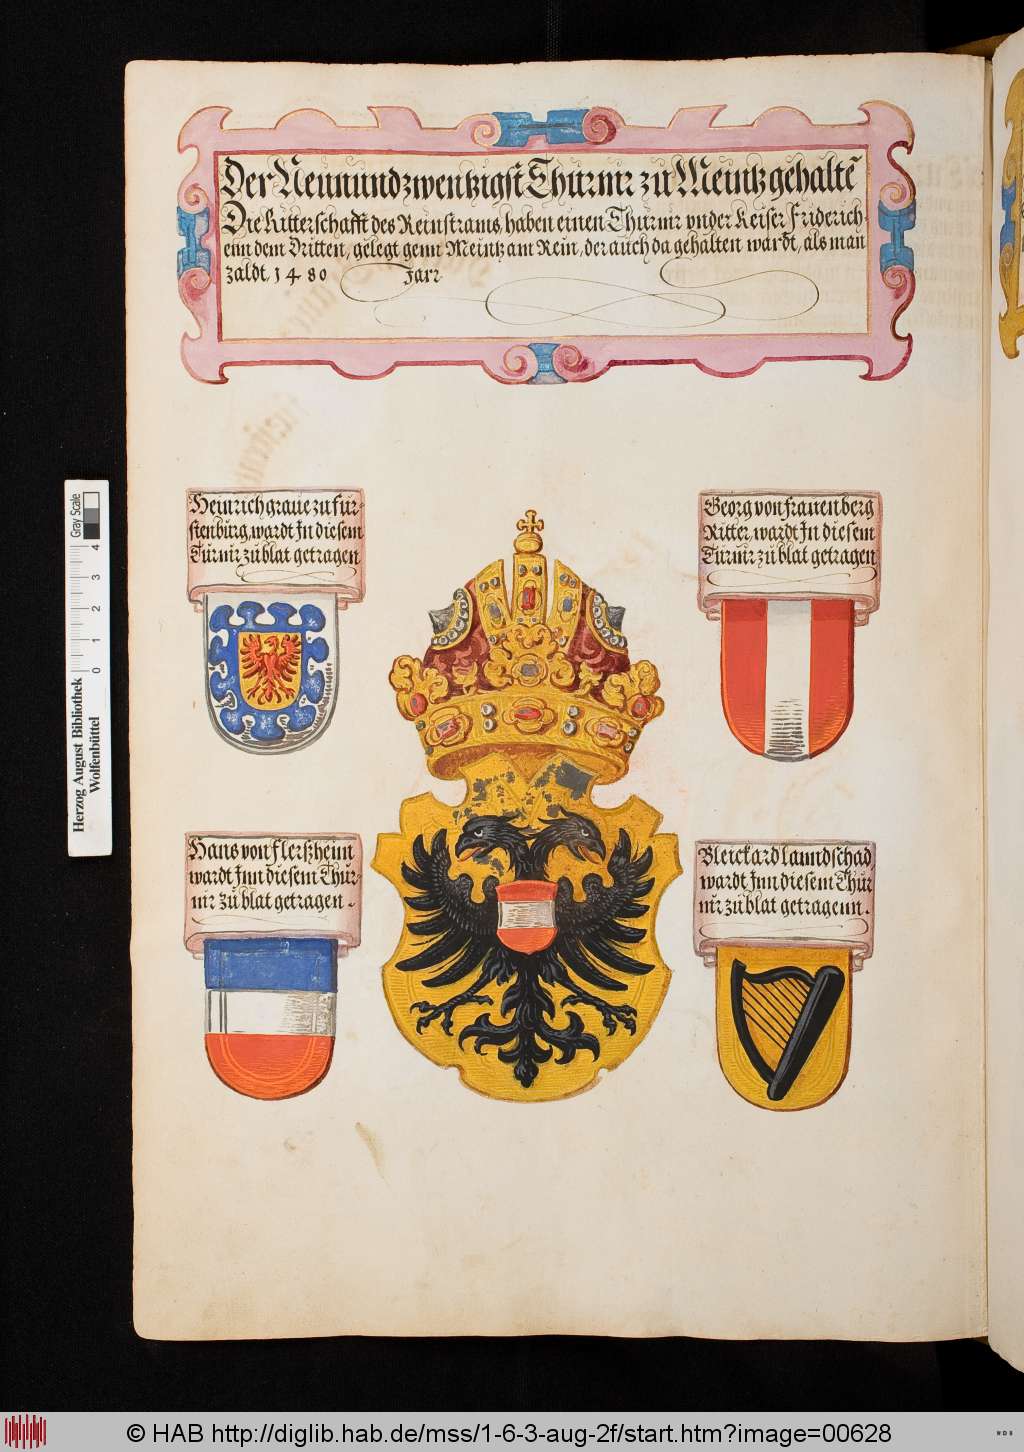 Der Neunundzwentzigst Thurnir zu Meintz gehaltē
Die Ritterschafft des Reinstrams, haben einen Thurnir vnder Keiser Friderich-
enn dem Dritten, gelegt genn Meintz am Rein, der auch da gehalten wardt, als man
zaldt, 1480 Jarr
Heinrich graue zu Fur-
stenburg, wardt In diesem
Turnir zu blat getragen
Georg von frauenberg
Ritter, wardt In diesem
Turnir zu blat getragen
Hans von flersheim
wardt Inn diesem Thur-
nir zu blat getragen.
Bleickard lanndschad
wardt Inn diesem Thur
nir zu blat getragenn.
Gray Scale
0 1 2 3 4
Herzog August Bibliothek
Wolfenbüttel
© HAB http://diglib.hab.de/mss/1-6-3-aug-2f/start.htm?image=00628
WDB